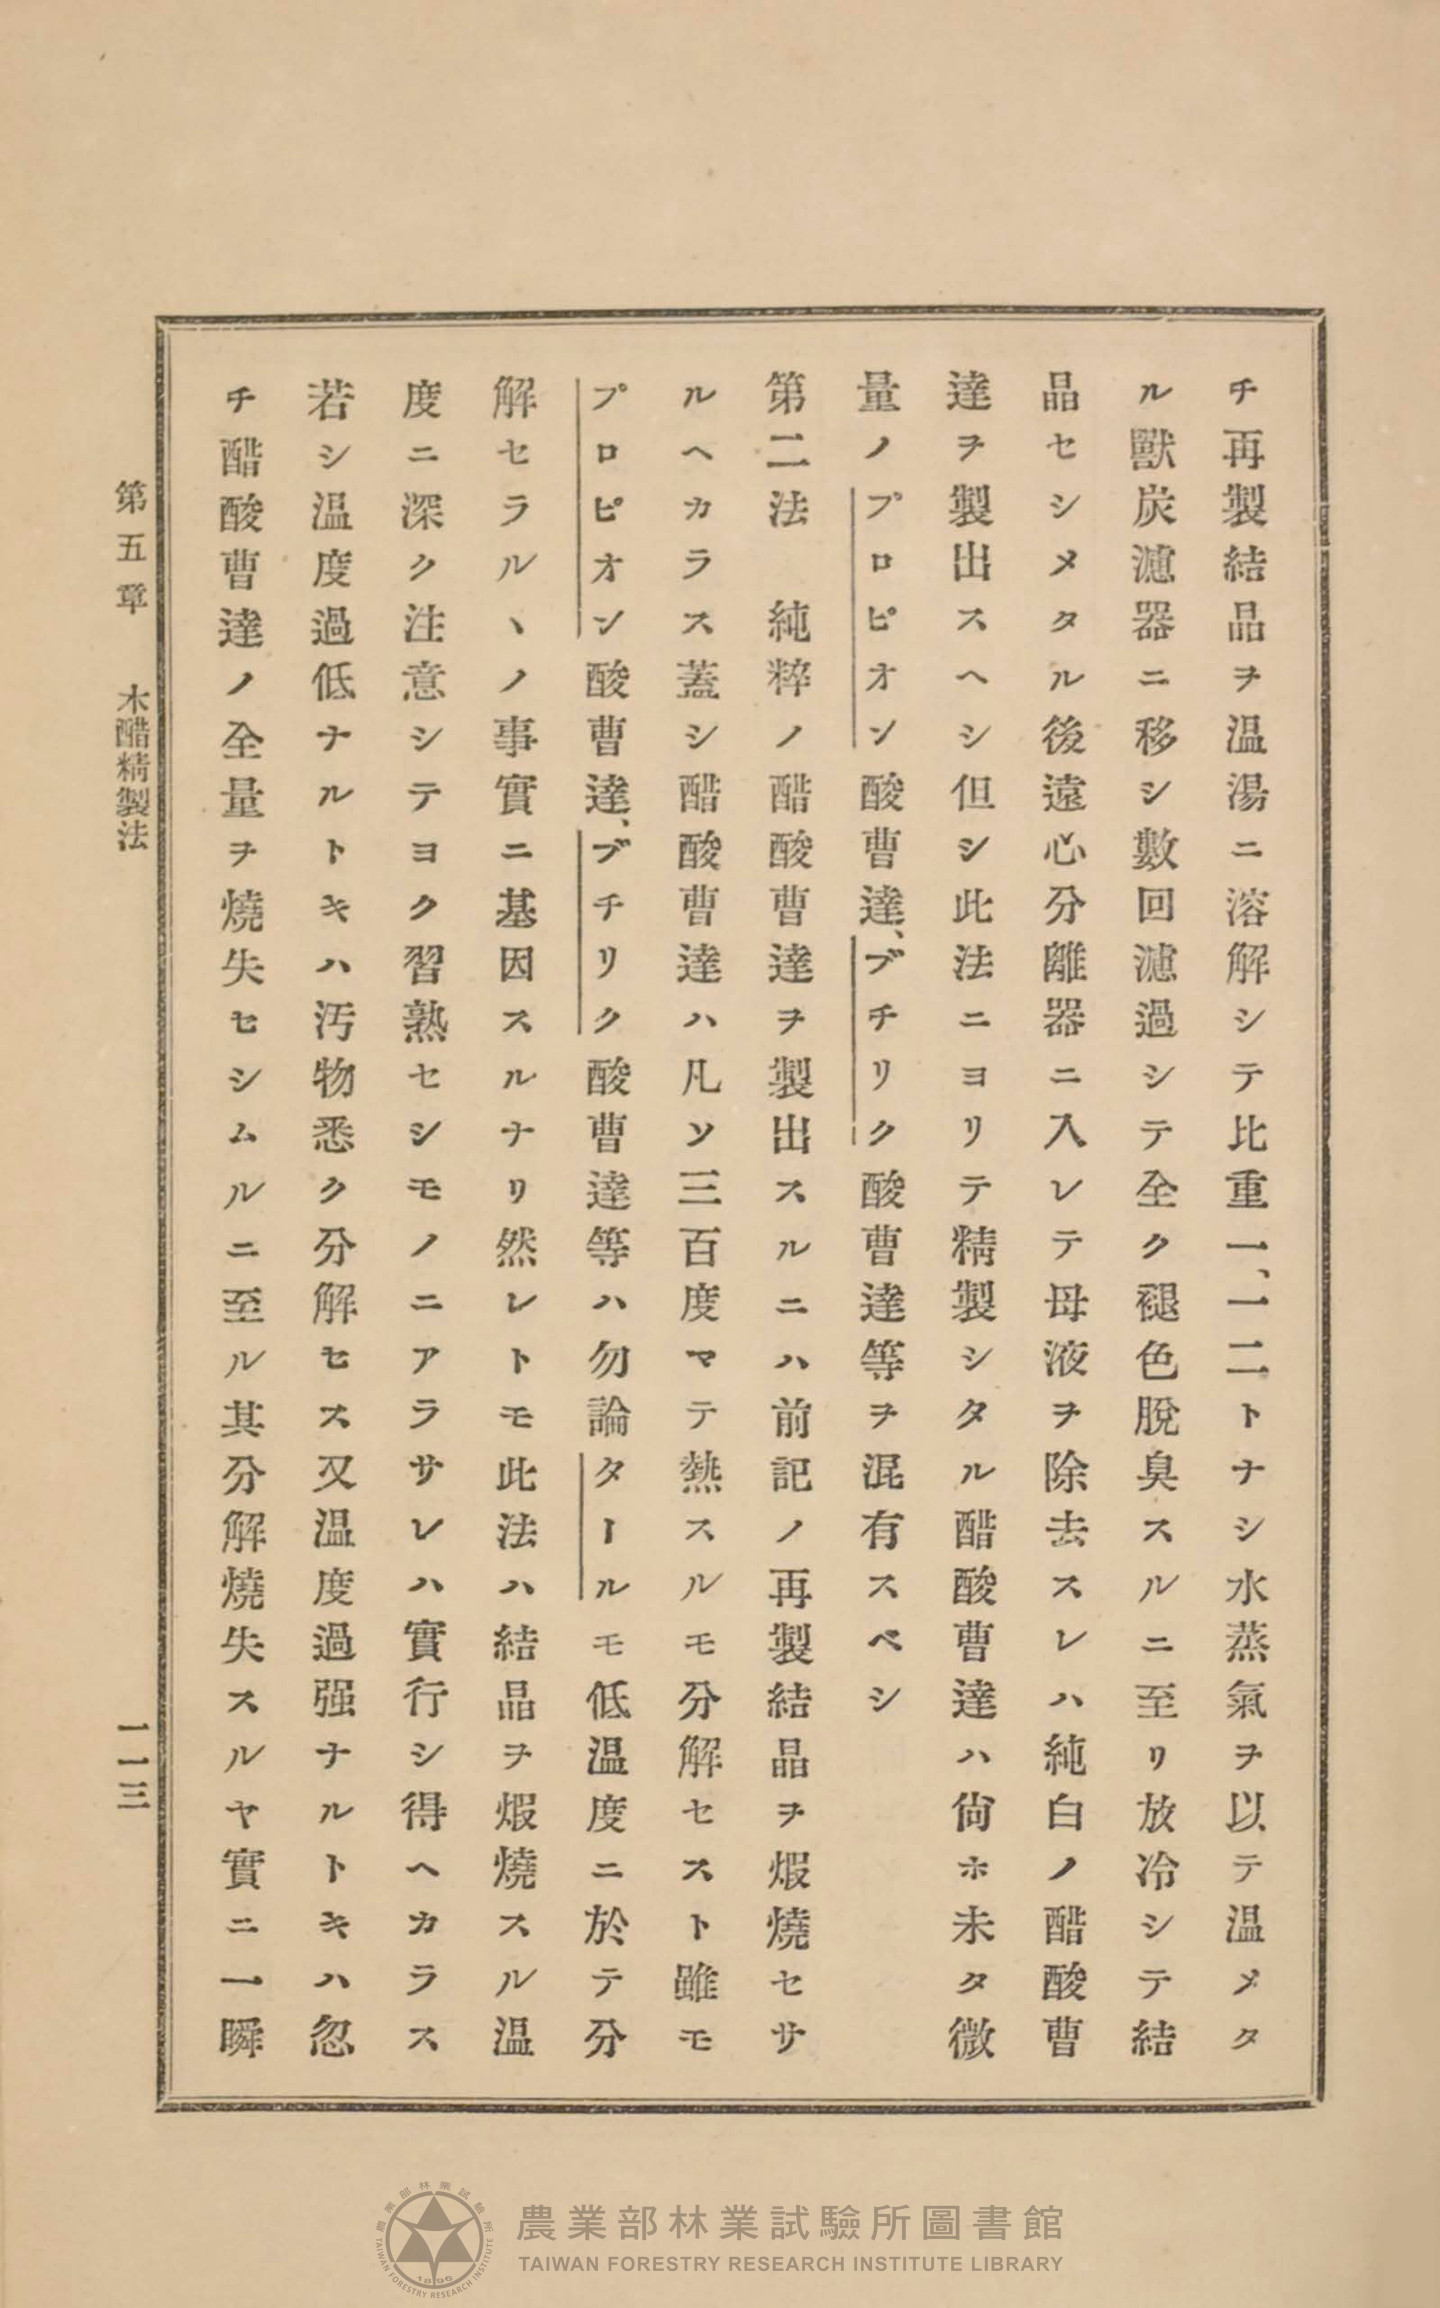 チ再製結晶ヲ温湯ニ溶解シテ比重一、一二トナシ水蒸氣ヲ以テ温メタ
ル獸炭濾器ニ移シ數回濾過シテ全ク褪色脫臭スルニ至リ放冷シテ結
晶セシメタル後遠心分離器ニ入レテ母液ヲ除去スレハ純白ノ醋酸曹
達ヲ製出スヘシ但シ此法ニヨリテ精製シタル醋酸曹達ハ尙ホ未タ微
量ノプロピオン酸曹達、ブチリク酸曹達等ヲ混有スベシ
第二法　純粹ノ醋酸曹達ヲ製出スルニハ前記ノ再製結晶ヲ煆燒セサ
ルヘカラス蓋シ醋酸曹達ハ凡ソ三百度マテ熱スルモ分解セスト雖モ
プロピオン酸曹達、ブチリク酸曹達等ハ勿論タールモ低温度ニ於テ分
解セラルヽノ事實ニ基因スルナリ然レトモ此法ハ結晶ヲ煆燒スル温
度ニ深ク注意シテヨク習熟セシモノニアラサレハ實行シ得ヘカラス
若シ温度過低ナルトキハ汚物悉ク分解セス又温度過强ナルトキハ忽
チ醋酸曹達ノ全量ヲ燒失セシムルニ至ル其分解燒失スルヤ實ニ一瞬
第五章　木醋精製法　一一三
農業部林業試驗所圖書館
TAIWAN FORESTRY RESEARCH INSTITUTE LIBRARY
農業部林業試驗所
TAIWAN FORESTRY RESEARCH INSTITUTE
1896